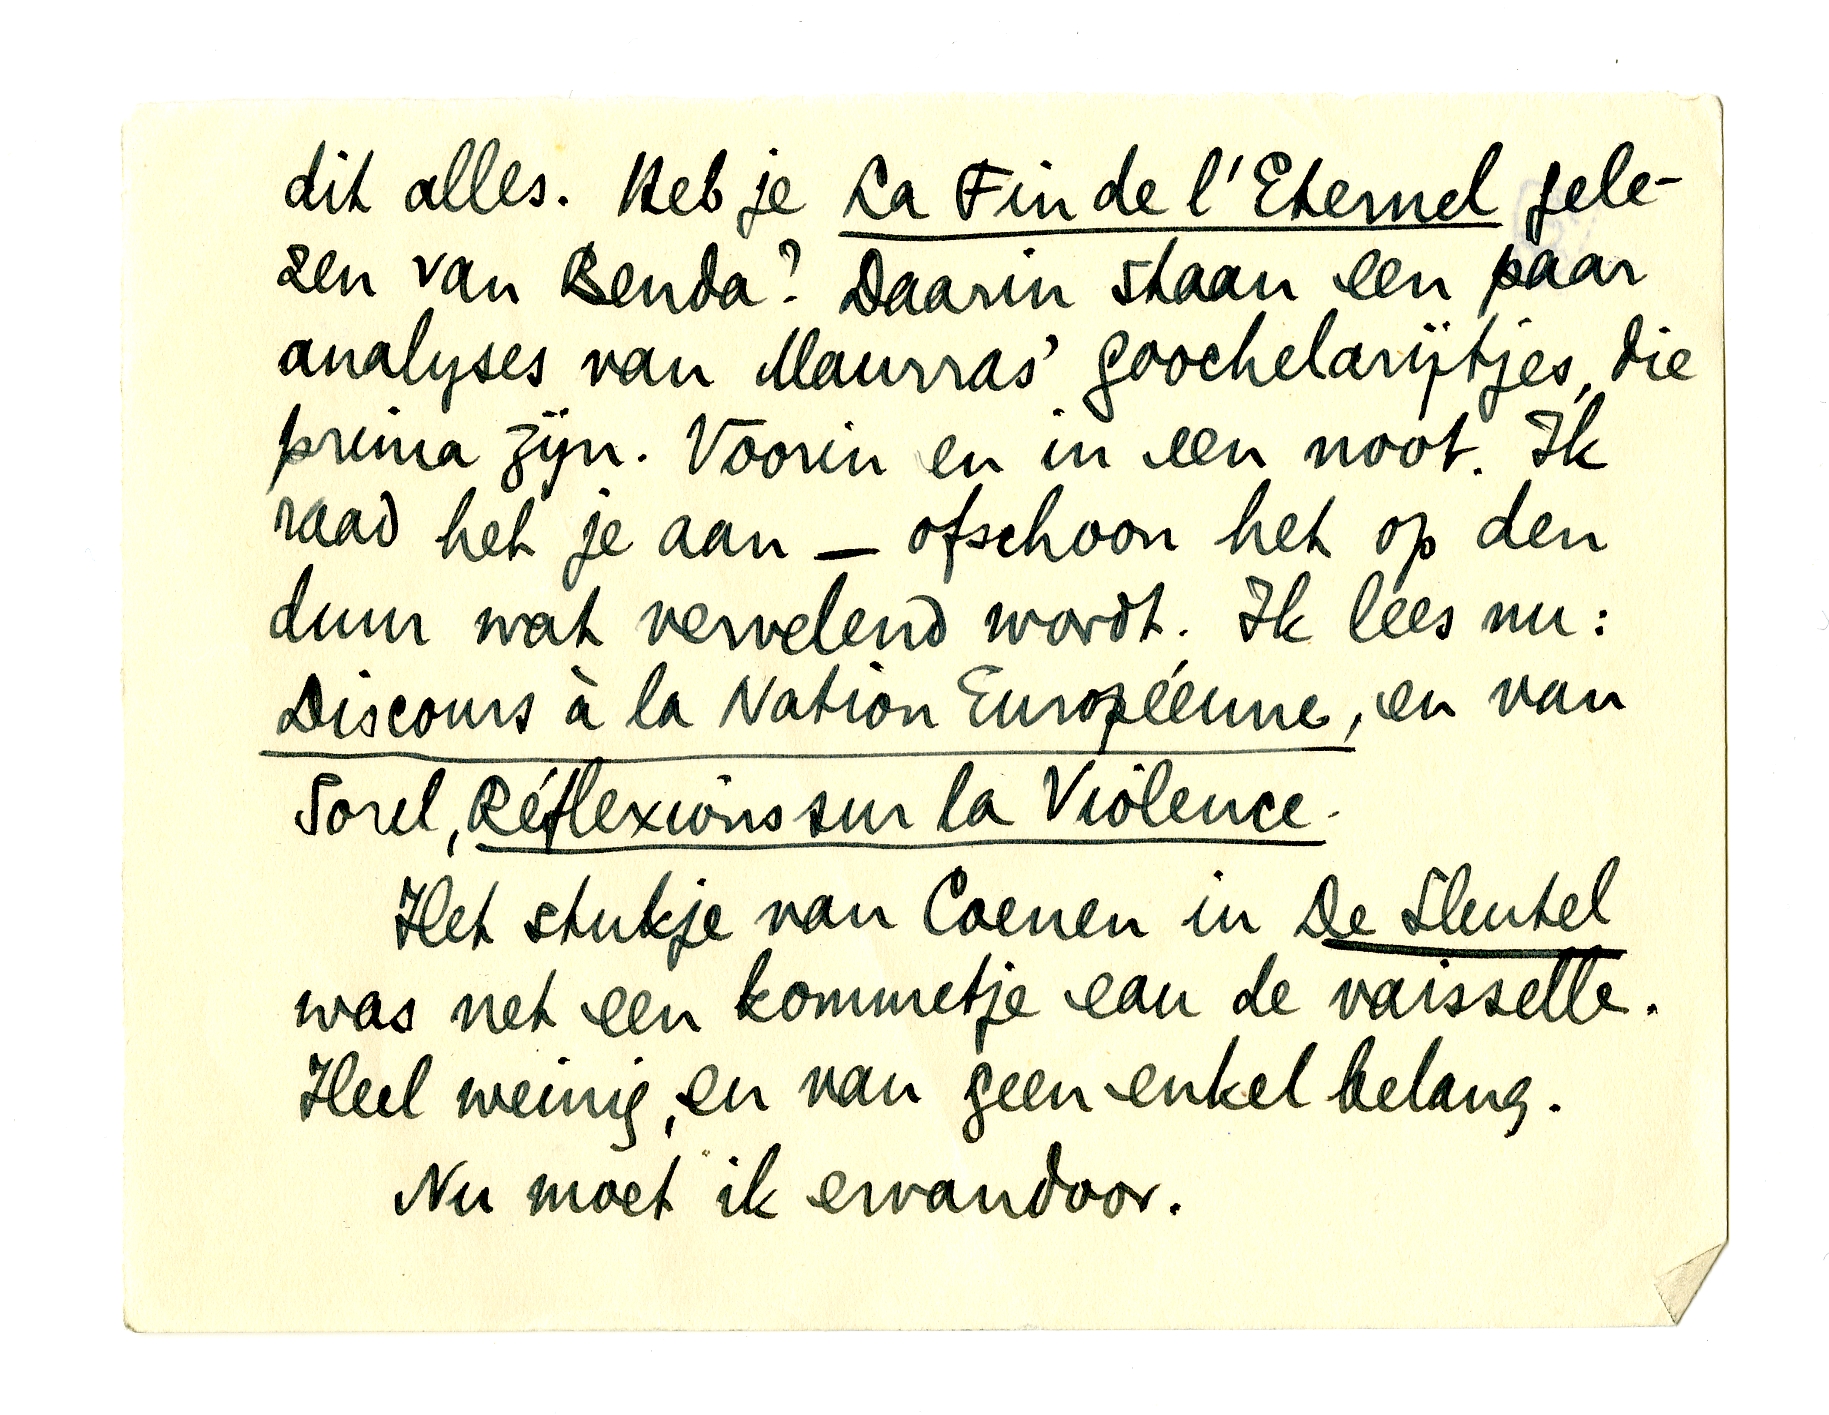 dit alles. Heb je La Fin de l'Eternel gele-
zen van Benda? Daarin staan een paar
analyses van Maurras' goochelarijtjes, die
prima zijn. Voorin en in een noot. Ik
raad het je aan — ofschoon het op den
duur wat vervelend wordt. Ik lees nu:
Discours à la Nation Européenne, en van
Sorel, Réflexions sur la Violence.
Het stukje van Coenen in De Sleutel
was net een kommetje eau de vaisselle.
Heel weinig, en van geen enkel belang.
Nu moet ik ervandoor.